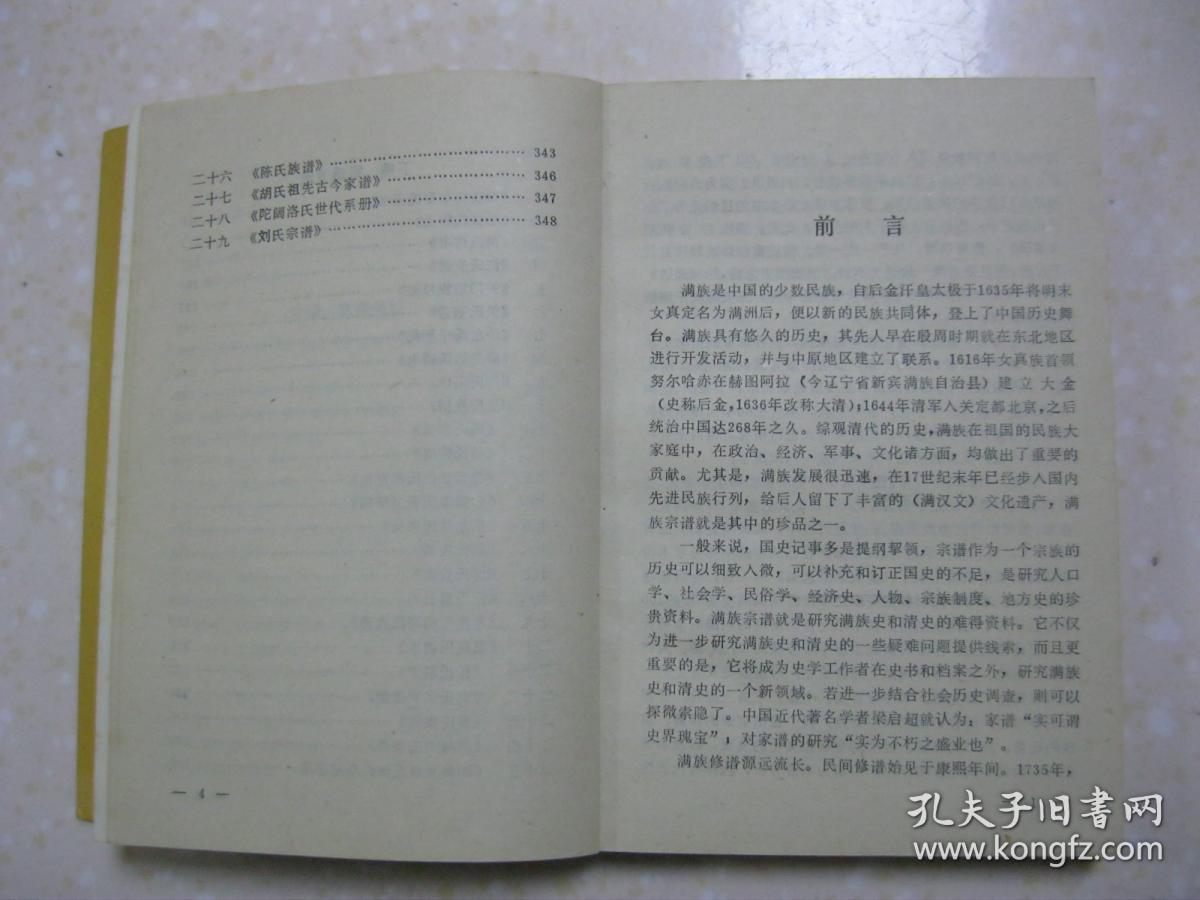 二十六 《陈氏族谱》…………………………… 343
二十七 《胡氏祖先古今家谱》…………………… 346
二十八 《陀阔洛氏世代系册》…………………… 347
二十九 《刘氏宗谱》…………………………… 348
— 4 —
前 言
满族是中国的少数民族，自后金汗皇太极于1635年将明末
女真定名为满洲后，便以新的民族共同体，登上了中国历史舞
台。满族具有悠久的历史，其先人早在殷周时期就在东北地区
进行开发活动，并与中原地区建立了联系。1616年女真族首领
努尔哈赤在赫图阿拉（今辽宁省新宾满族自治县）建立大金
（史称后金，1636年改称大清）；1644年清军入关定都北京，之后
统治中国达268年之久。综观清代的历史，满族在祖国的民族大
家庭中，在政治、经济、军事、文化诸方面，均做出了重要的
贡献。尤其是，满族发展很迅速，在17世纪末年已经步入国内
先进民族行列，给后人留下了丰富的（满汉文）文化遗产，满
族宗谱就是其中的珍品之一。
一般来说，国史记事多是提纲挈领，宗谱作为一个宗族的
历史可以细致入微，可以补充和订正国史的不足，是研究人口
学、社会学、民俗学、经济史、人物、宗族制度、地方史的珍
贵资料。满族宗谱就是研究满族史和清史的难得资料。它不仅
为进一步研究满族史和清史的一些疑难问题提供线索，而且更
重要的是，它将成为史学工作者在史书和档案之外，研究满族
史和清史的一个新领域。若进一步结合社会历史调查，则可以
探微索隐了。中国近代著名学者梁启超就认为：家谱“实可谓
史界瑰宝”；对家谱的研究“实为不朽之盛业也”。
满族修谱源远流长。民间修谱始见于康熙年间。1735年，
孔夫子旧书网
www.kongfz.com